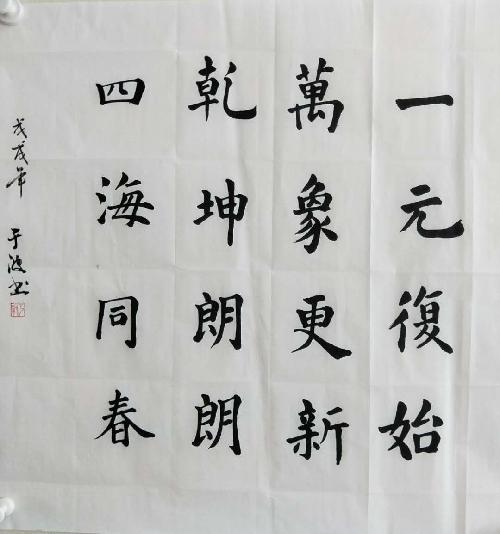 一元復始
萬象更新
乾坤朗朗
四海同春
戊戌年 于波书